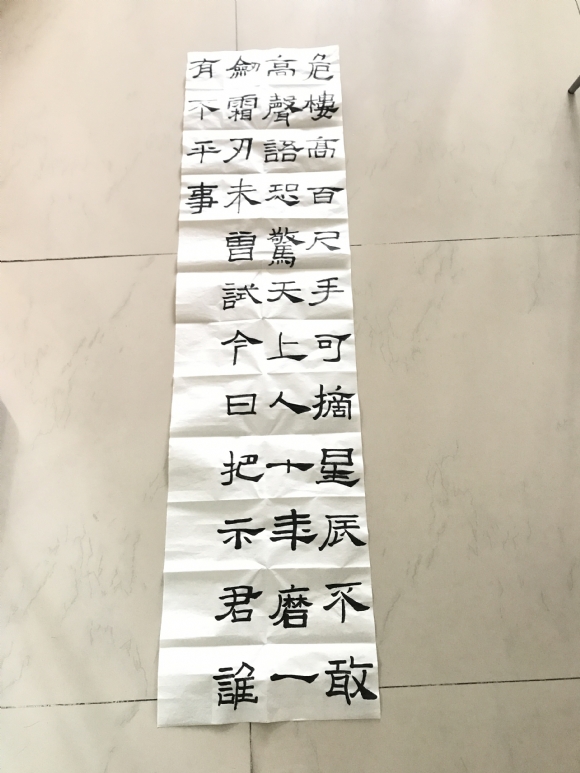 危樓高百尺手可摘星辰不敢
高聲語恐驚天上人十年磨一
劒霜刃未曾試今日把示君誰
有不平事